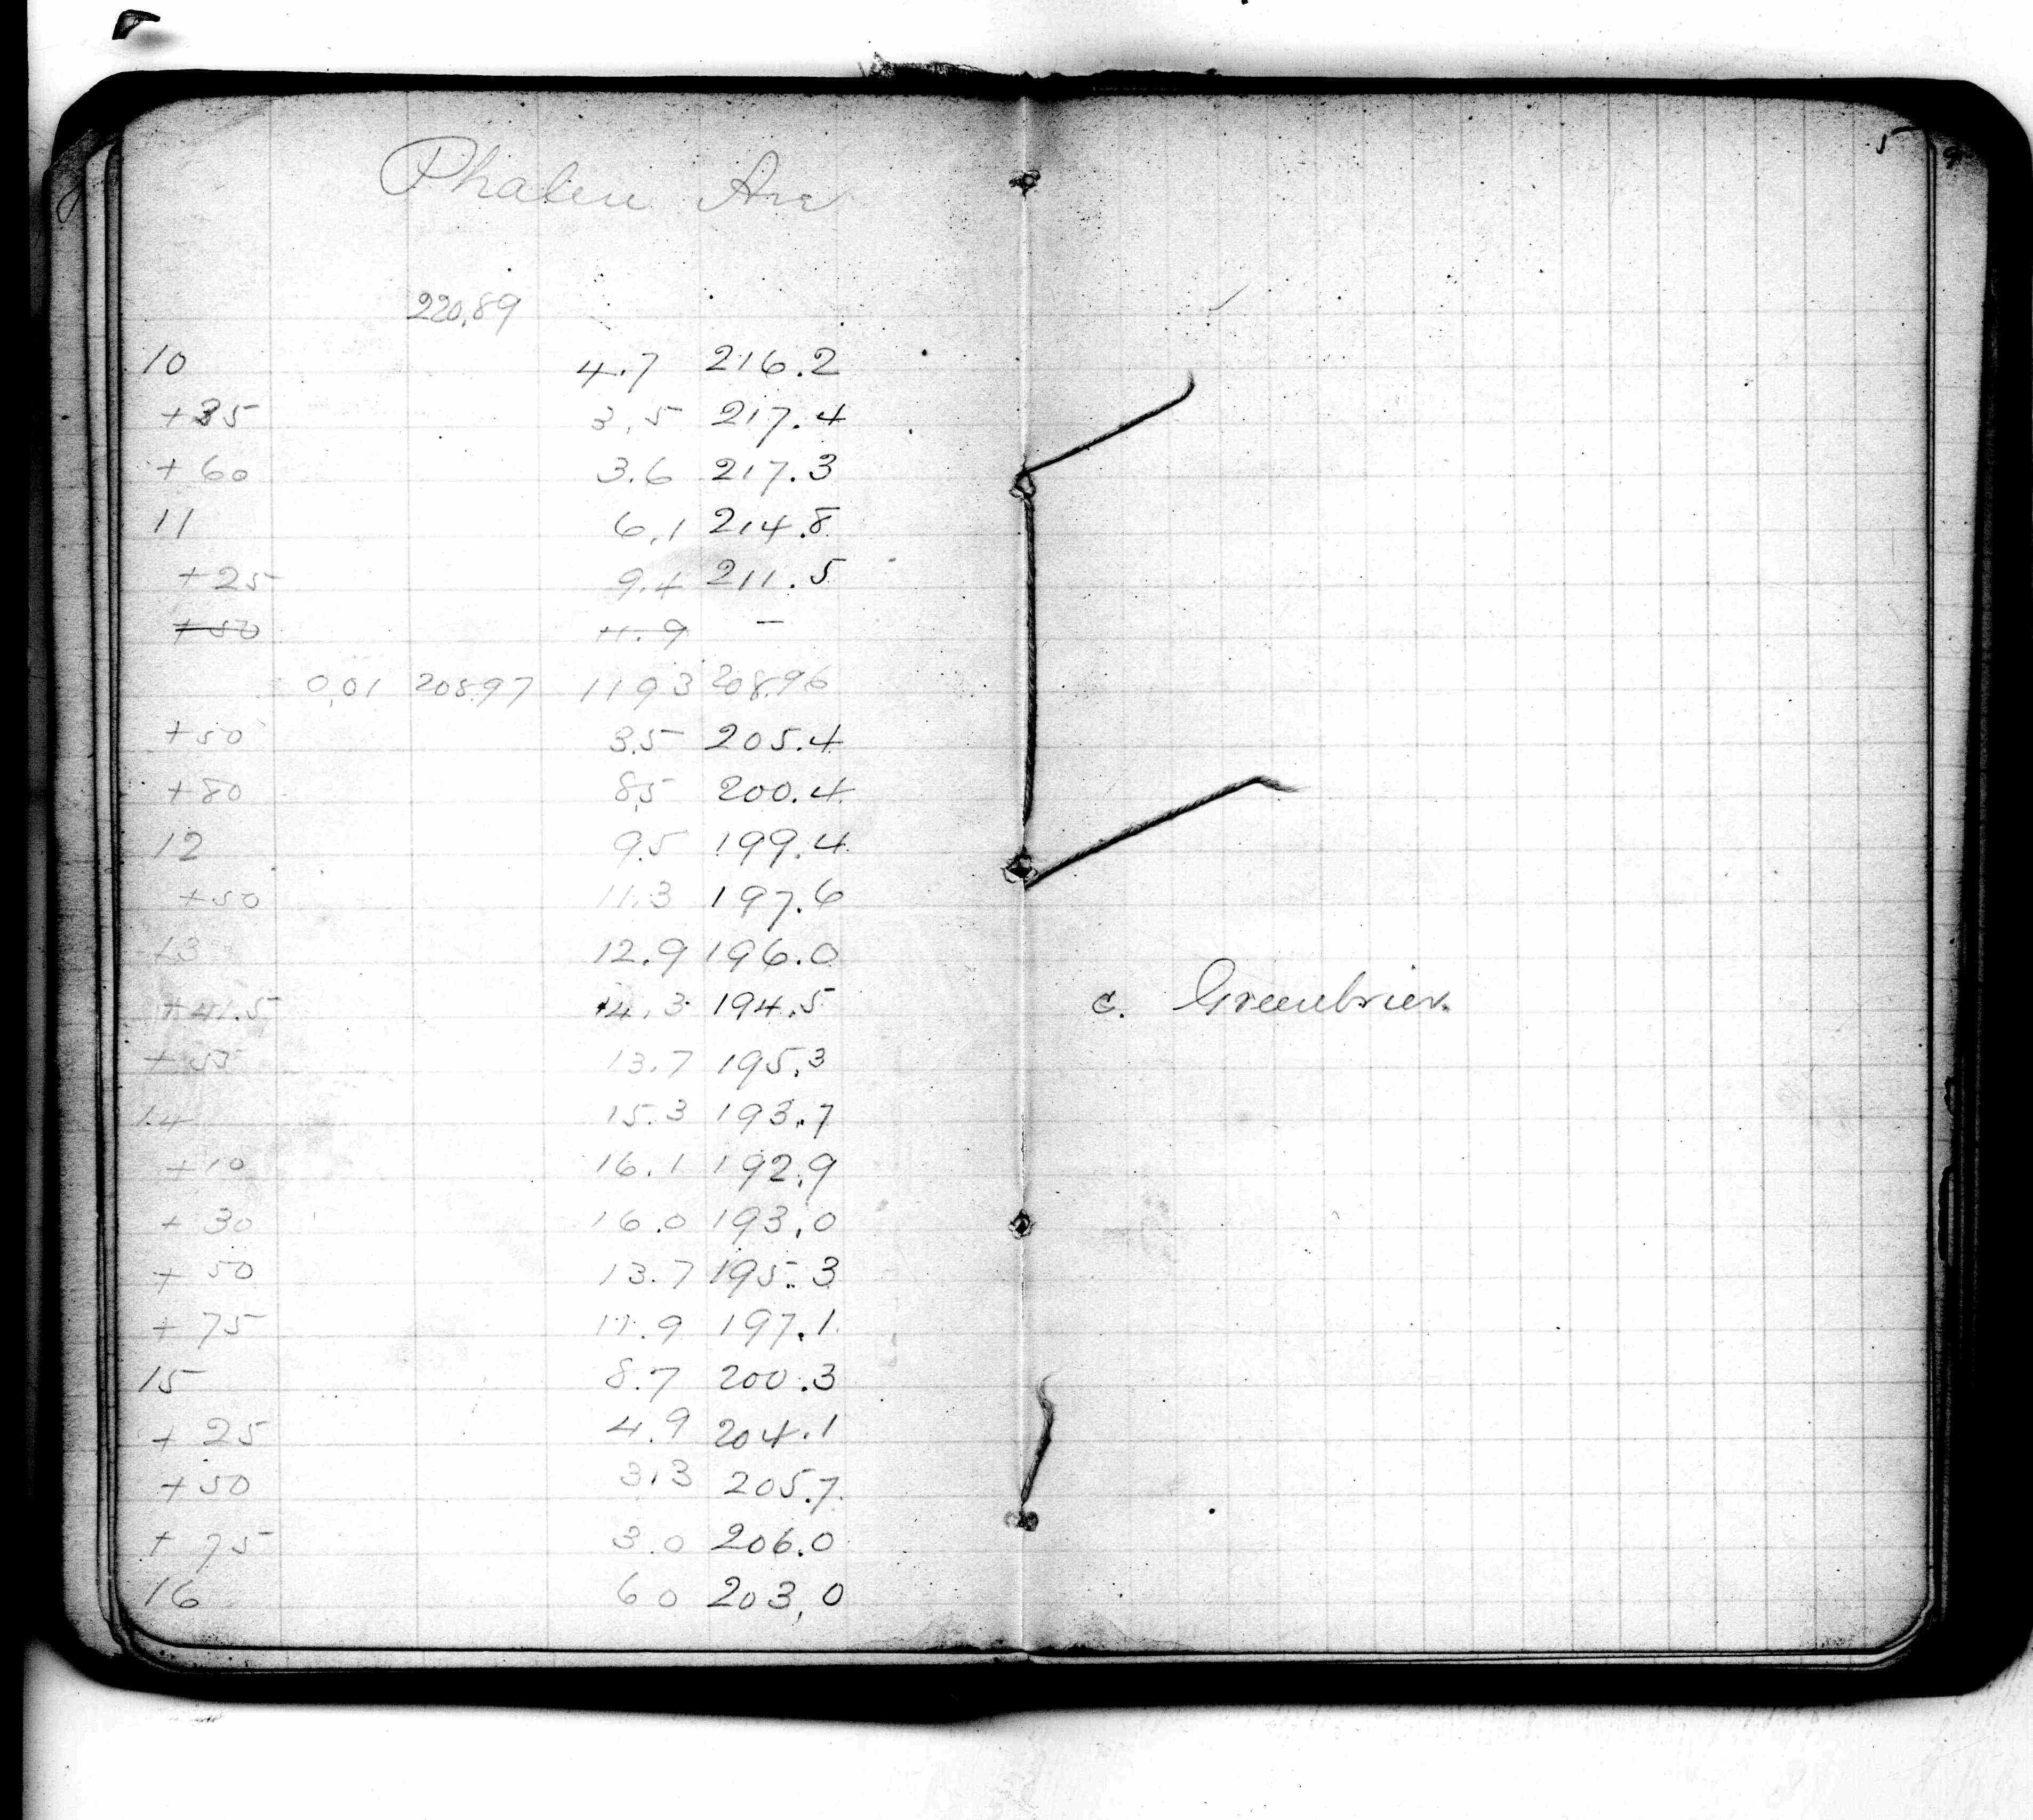 Phalen Ave
220.89
10 4.7 216.2
+35 3.5 217.4
+60 3.6 217.3
11 6.1 214.8
+25 9.4 211.5
+50 11.9 –
0.01 208.97 11.93 208.96
+50 3.5 205.4
+80 8.5 200.4
12 9.5 199.4
+50 11.3 197.6
13 12.9 196.0
+41.5 14.3 194.5 c. Greenbrier.
+55 13.7 195.3
14 15.3 193.7
+10 16.1 192.9
+30 16.0 193.0
+50 13.7 195.3
+75 11.9 197.1
15 8.7 200.3
+25 4.9 204.1
+50 3.3 205.7
+75 3.0 206.0
16 6.0 203.0
5